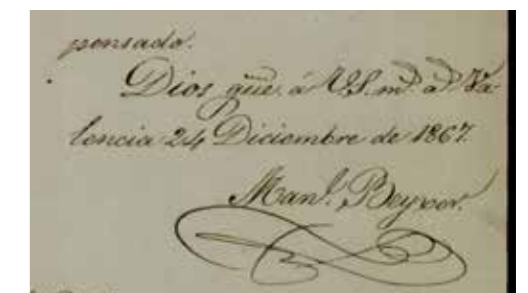 pensado.
Dios güe. á V.S. mˢ aˢ Va-
lencia 24 Diciembre de 1867.
Manˡ. Beyver.